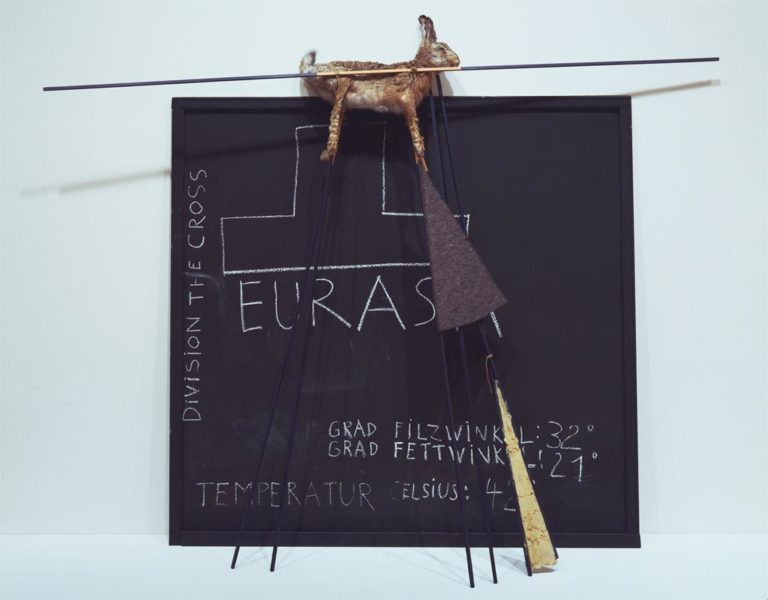 DIVISION THE CROSS
EURASIA
GRAD FILZWINKEL: 32°
GRAD FETTWINKEL: 21°
TEMPERATUR CELSIUS: 42°